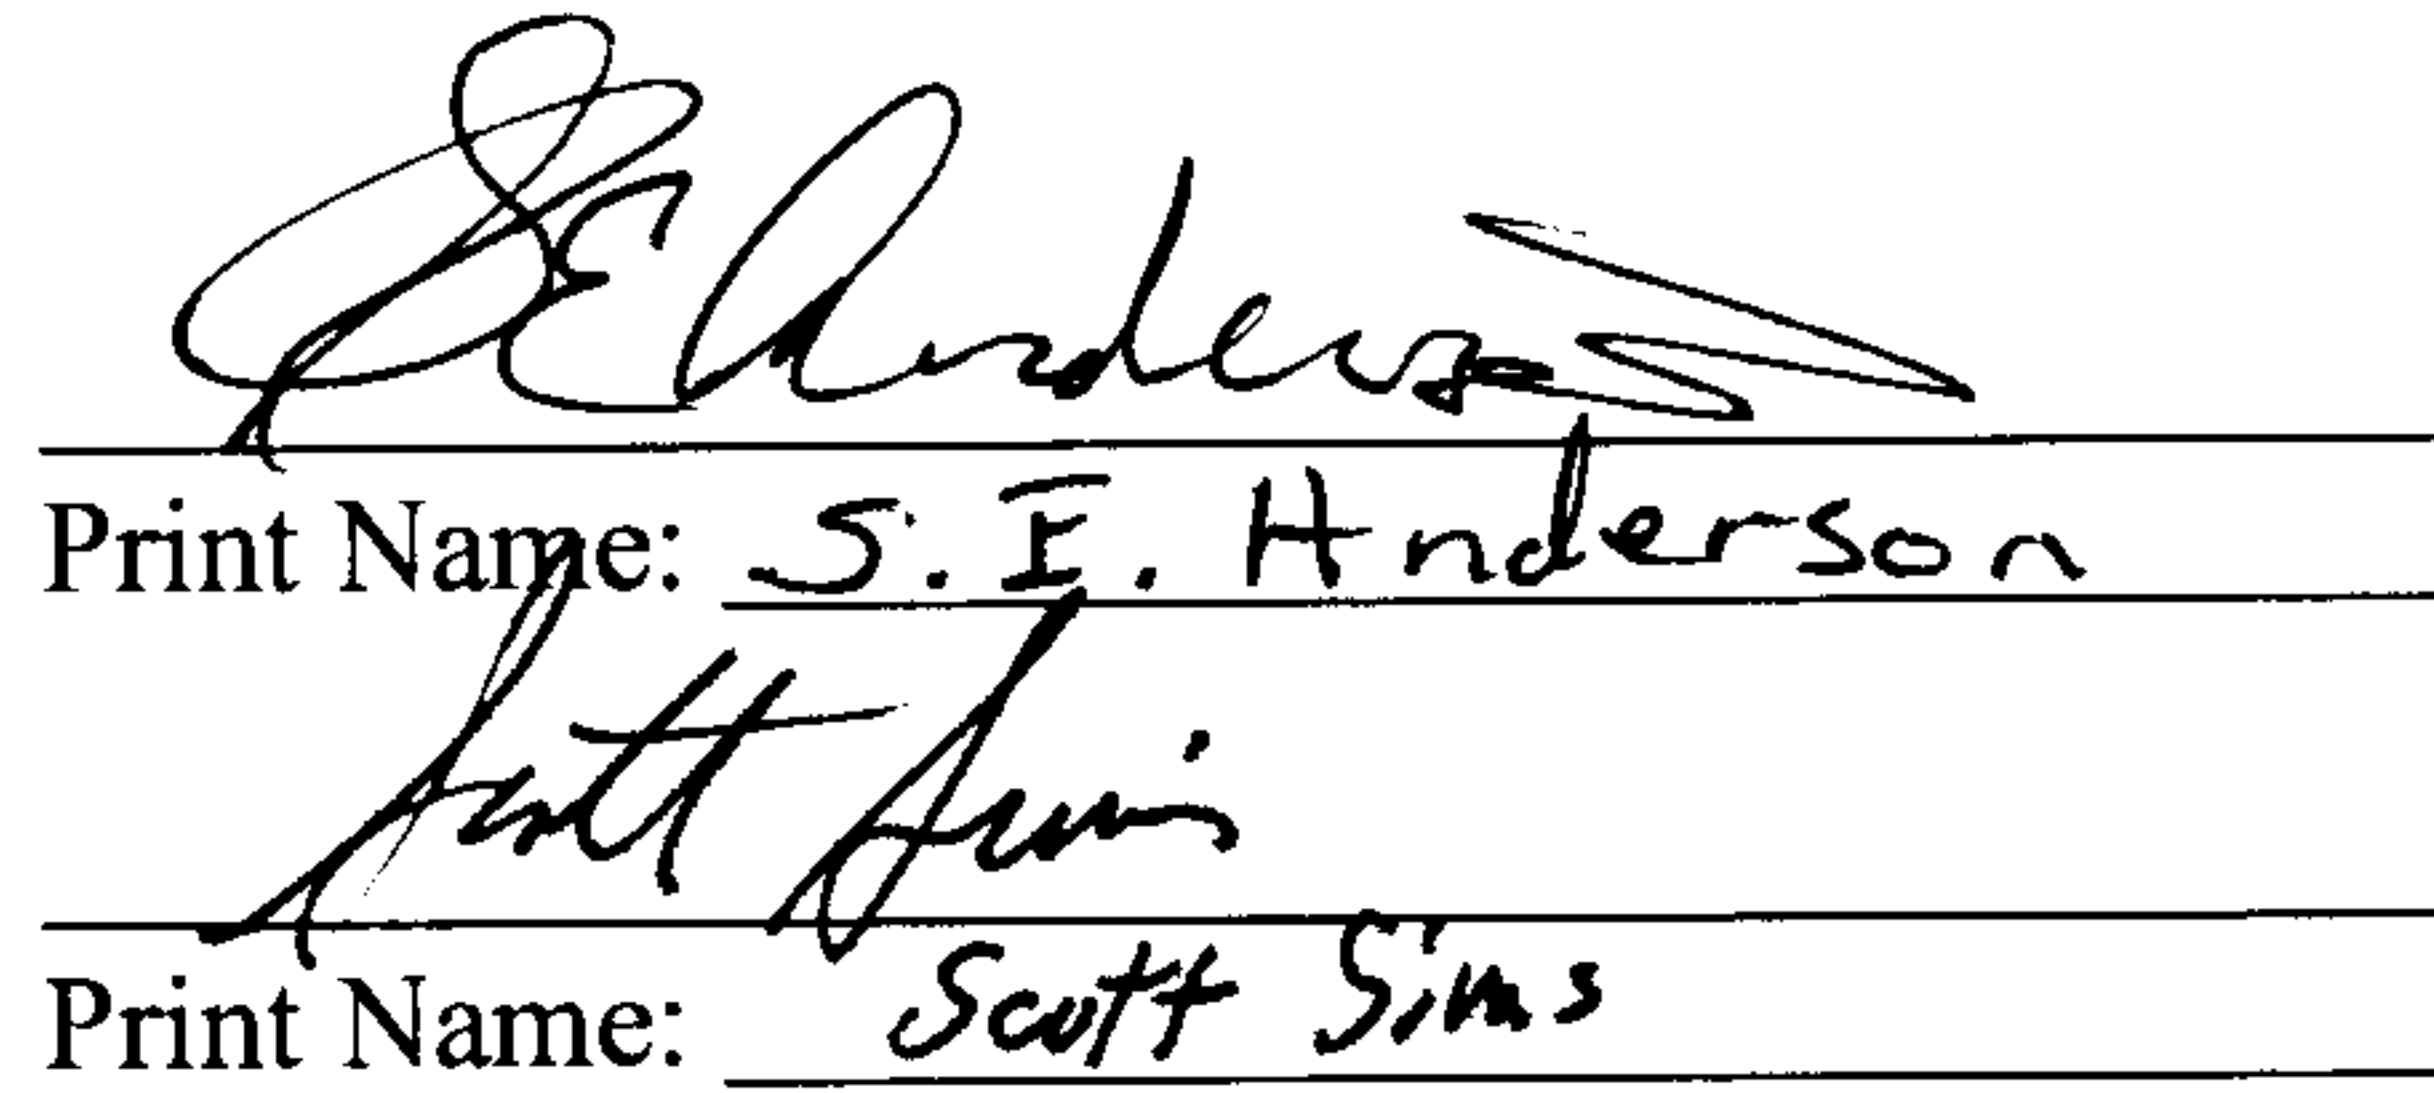 SE Anderson
Print Name: S. E. Anderson
Scott Sims
Print Name: Scott Sims